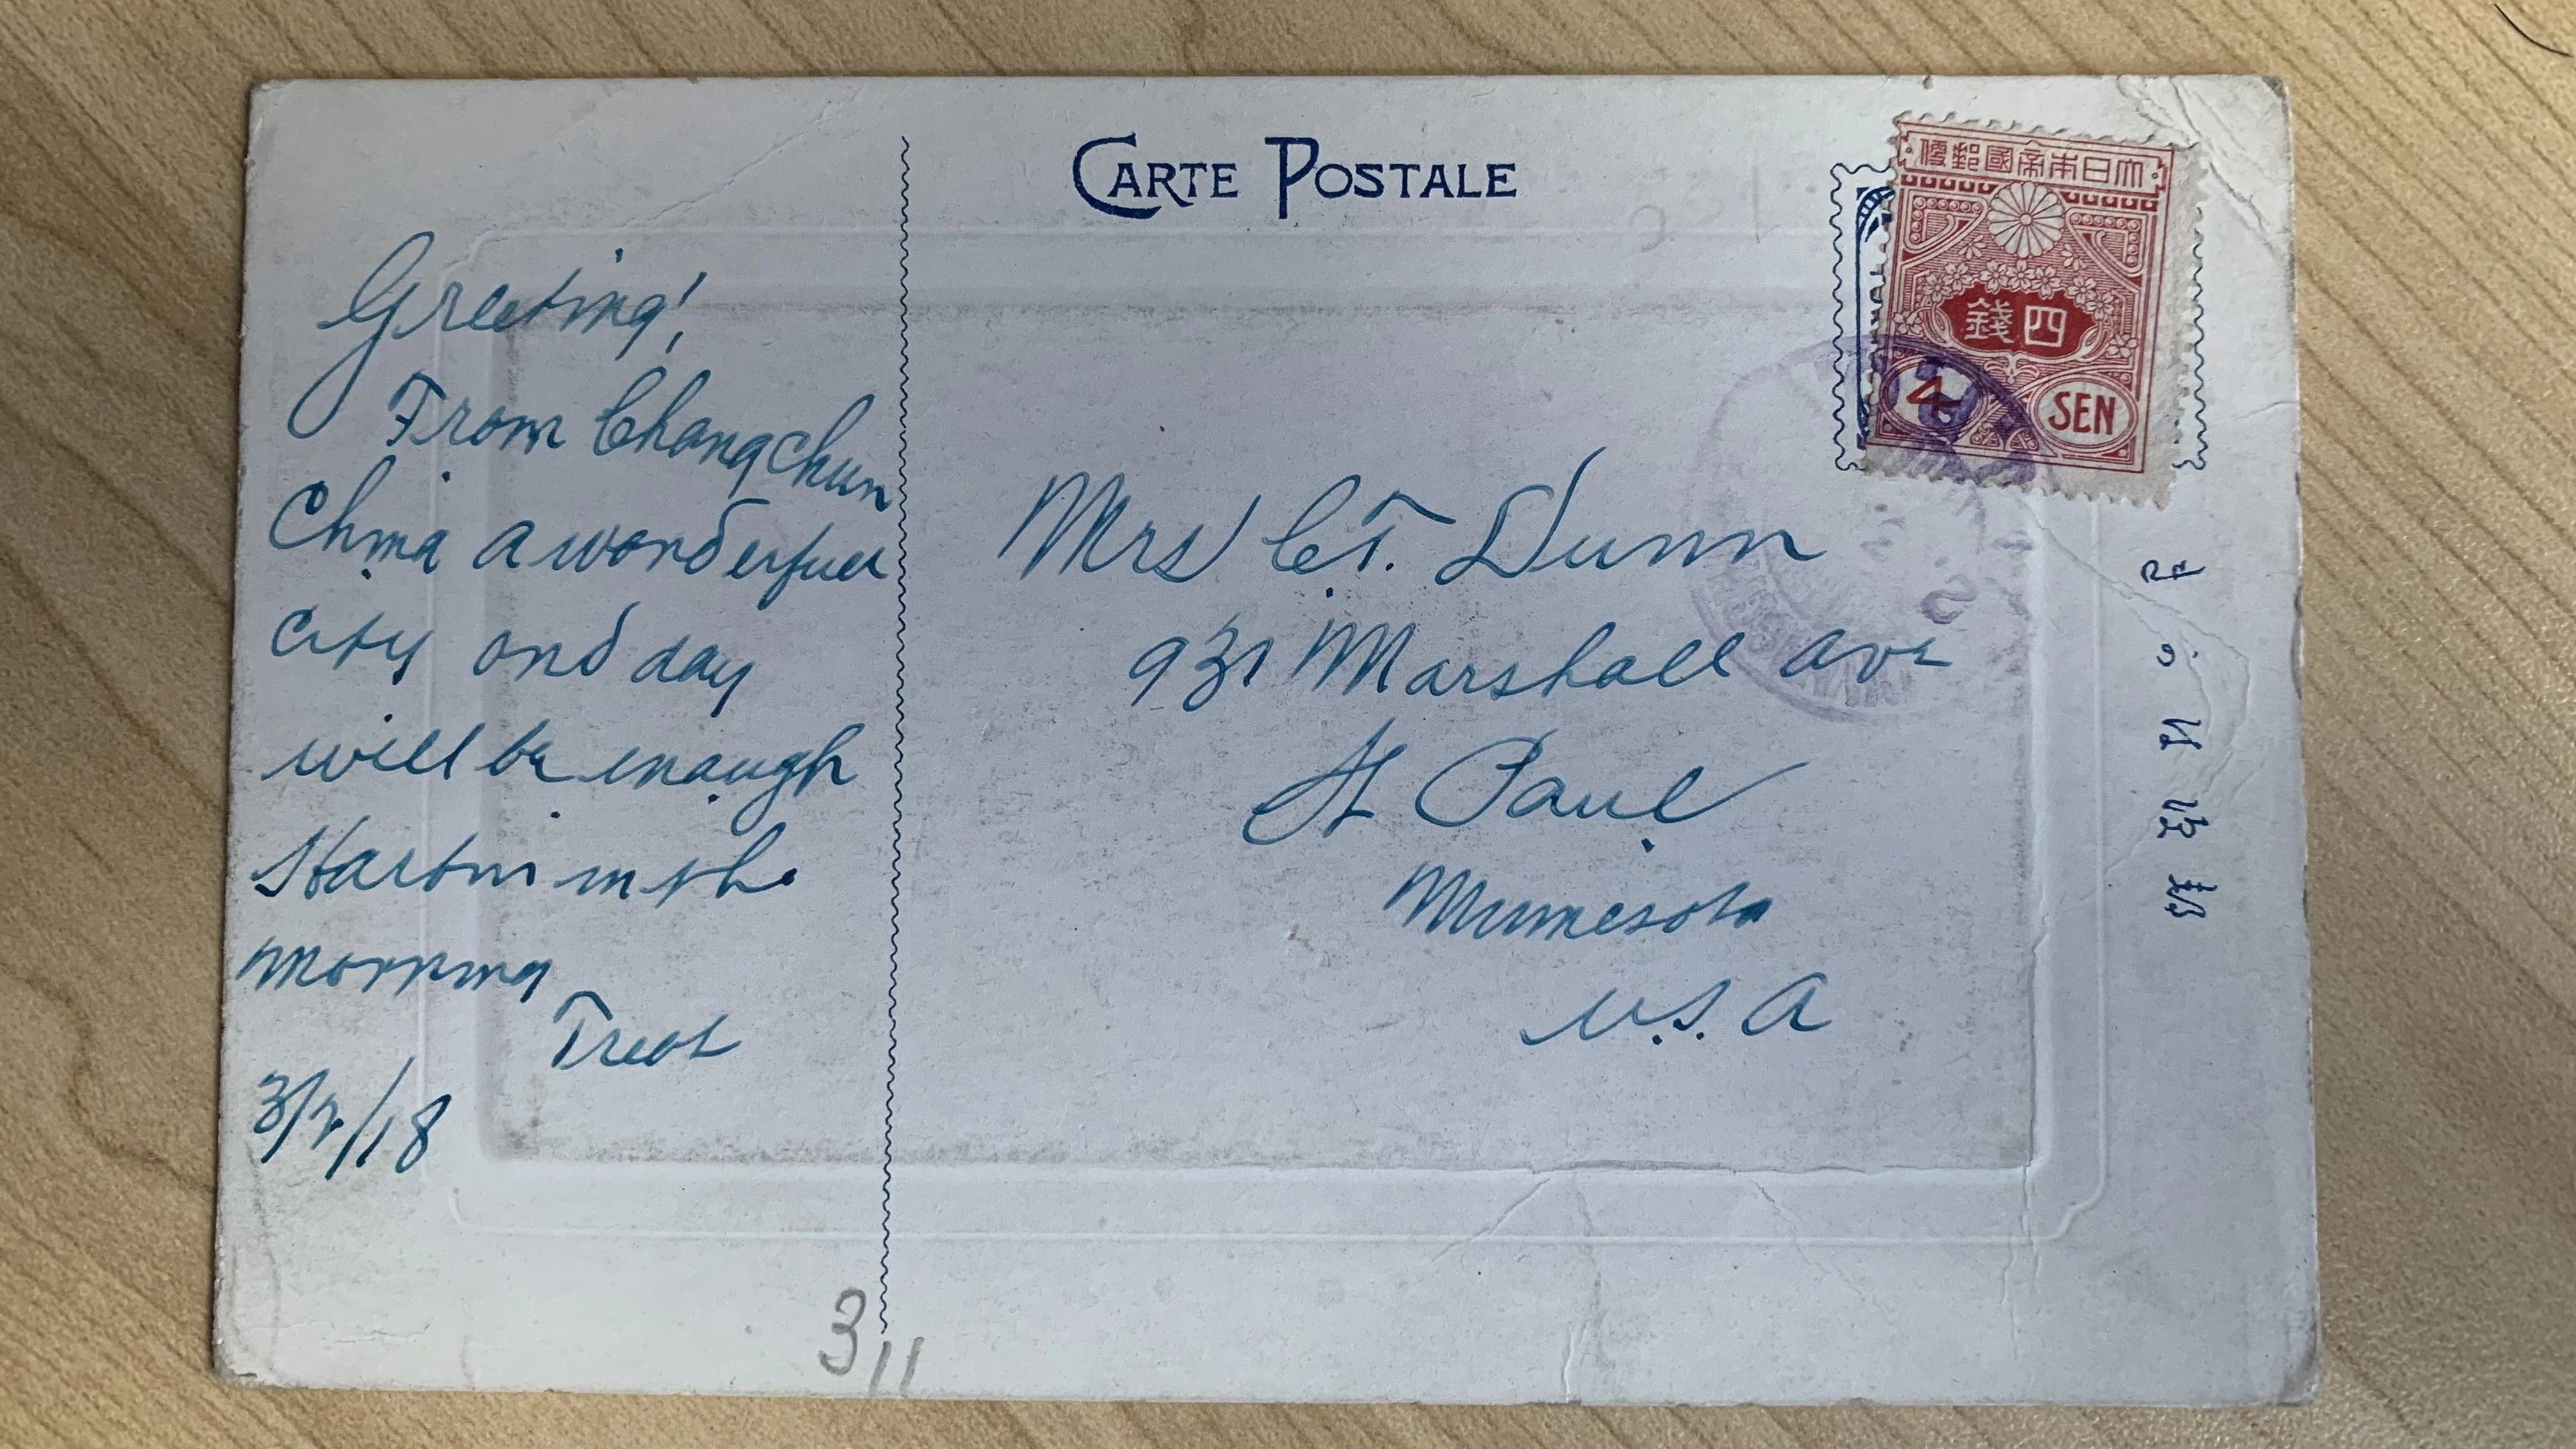 CARTE POSTALE
大日本帝國郵便
四錢
4 SEN
Greeting!
From Changchun
China a wonderfuel
City and day
will be enough
Harbin in the
morning
Treat
3/2/18
Mrs C.T. Dunn
931 Marshall Ave
St Paul
Minnesota
U.S.A
3/11